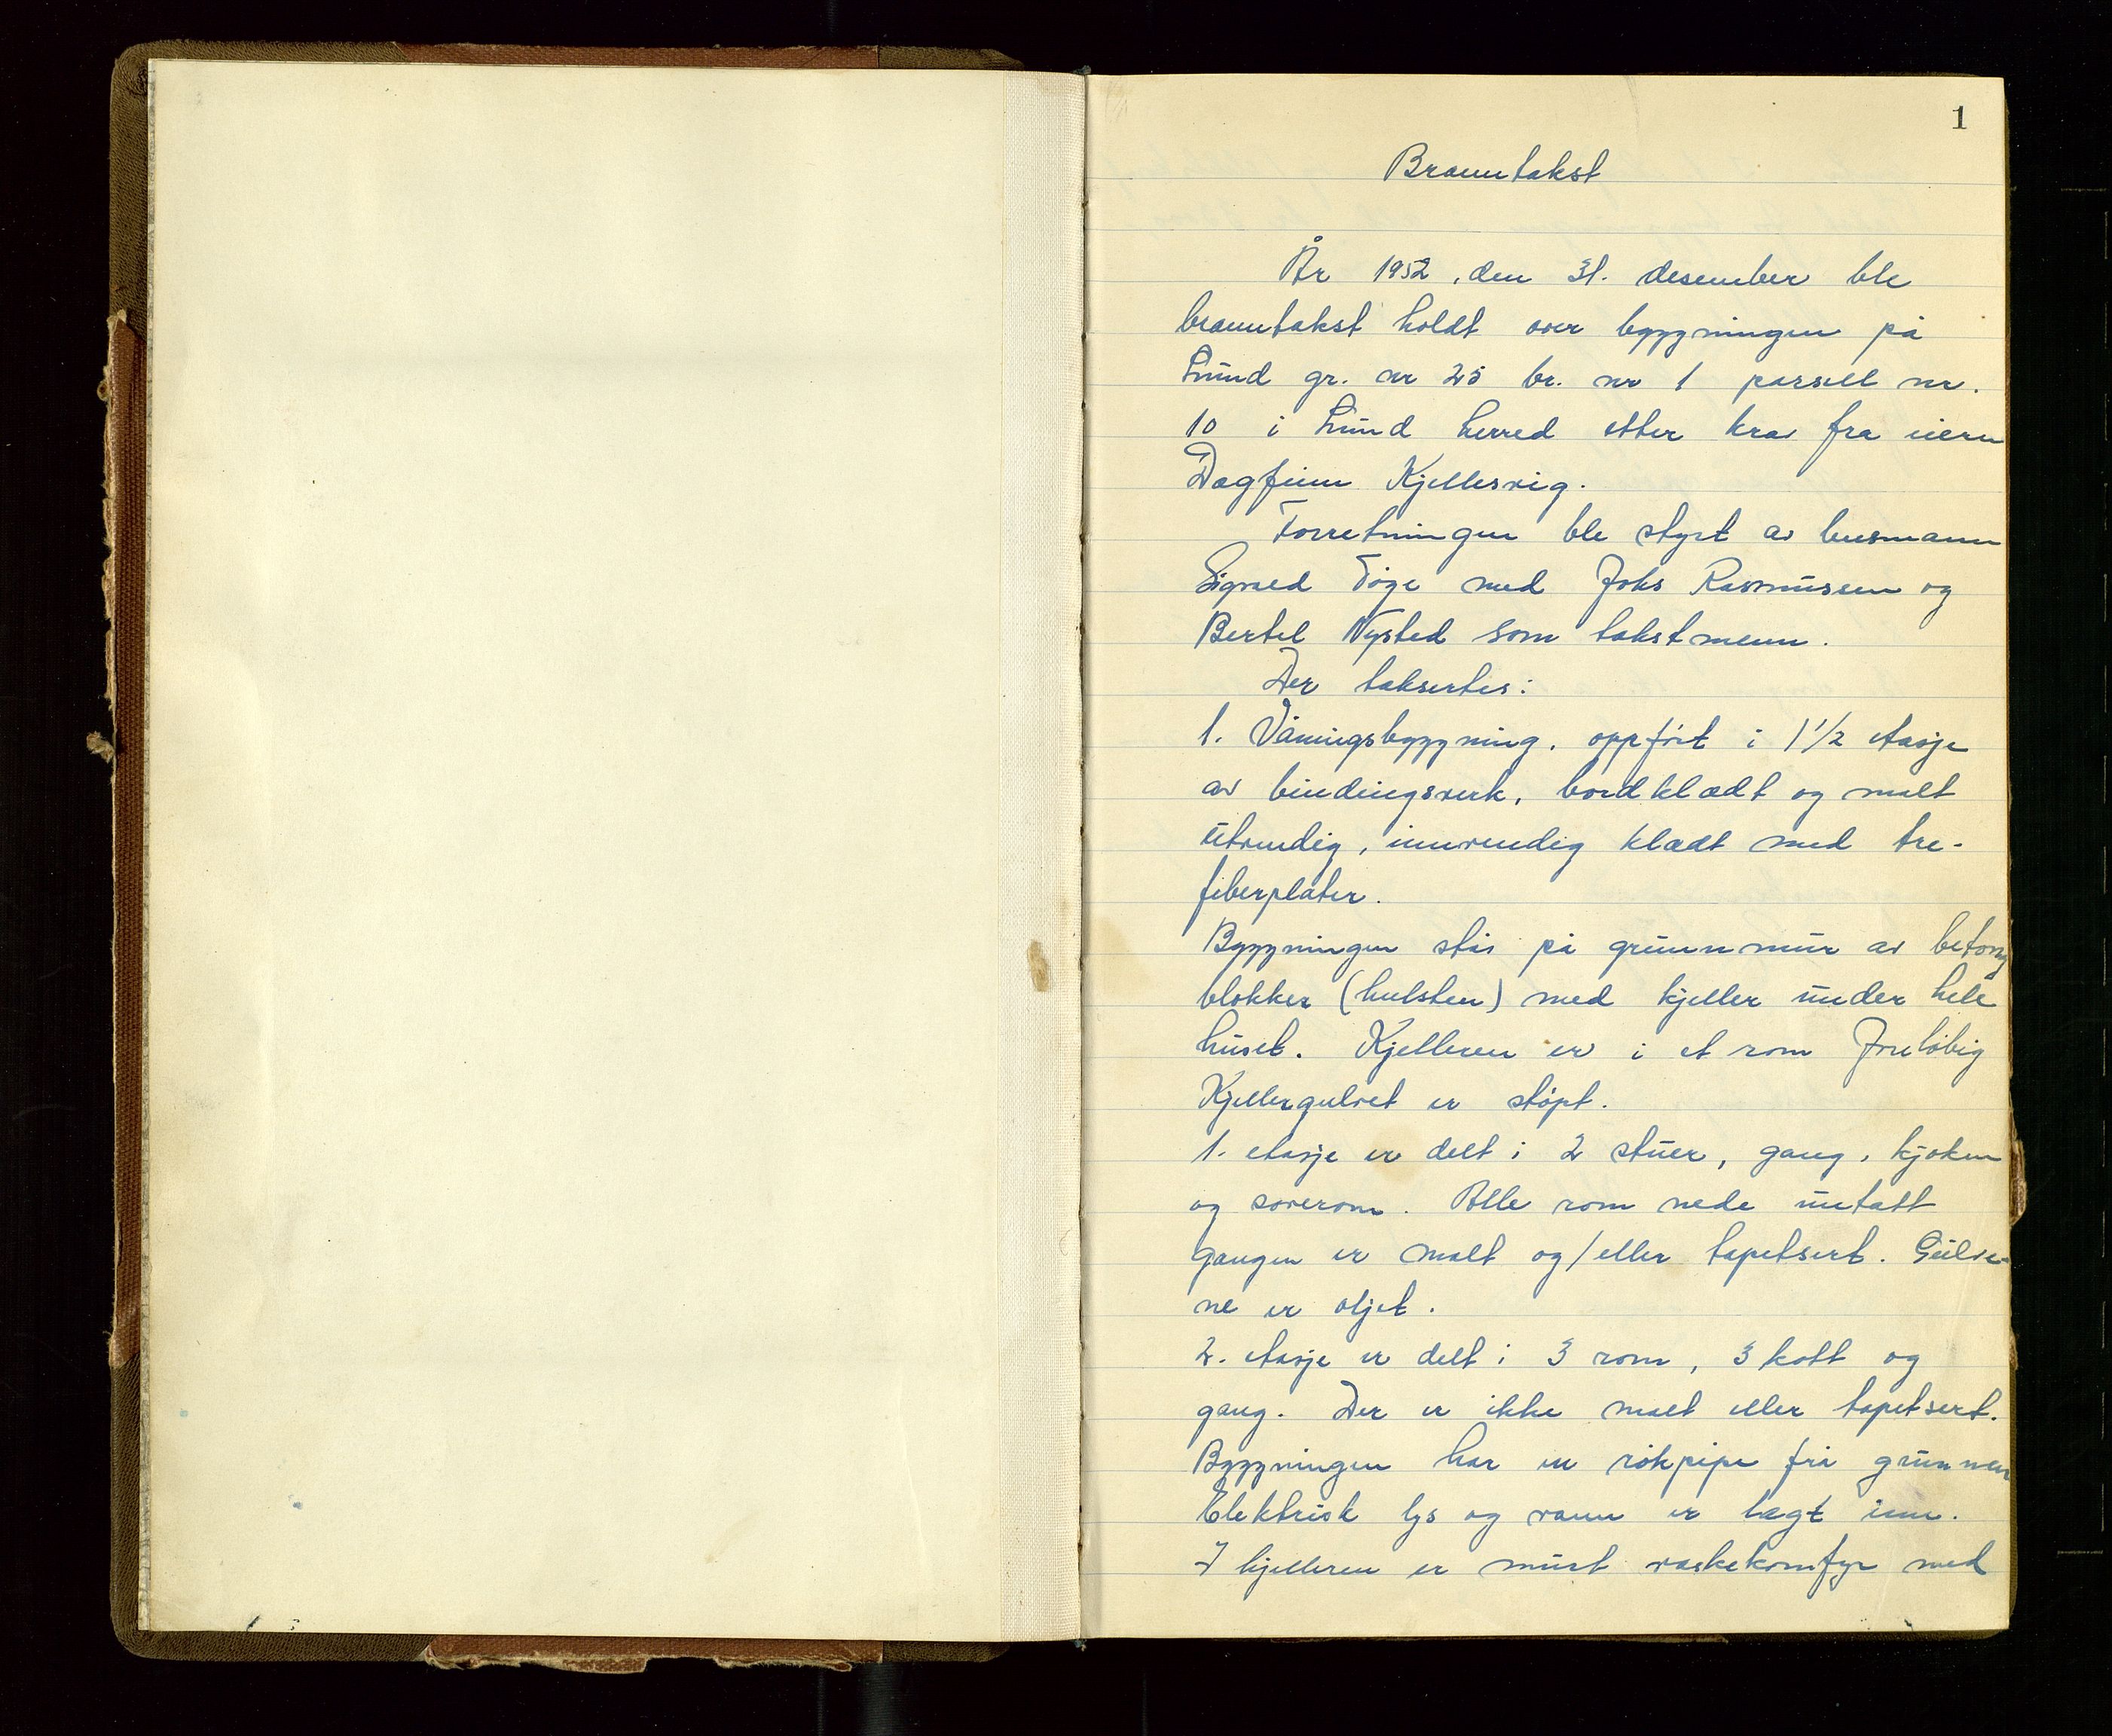 1
Branntakst
År 1952, den 31. desember ble
branntakst holdt over bygningen på
Lund gr. nr 25 br. nr 1 parsell nr.
10 i Lund herred etter krav fra eieren
Dagfinn Kjellesvig.
Forretningen ble styrt av lensmann
Sigvald Tøge med Johs Rasmussen og
Bertel Nysted som takstmenn.
Der taksertes:
1. Våningsbygning, oppført i 1 1/2 etasje
av bindingsverk, bordklædt og malt
utvendig, innvendig klædt med tre-
fiberplater.
Bygningen står på grunnmur av betong
blokker (hulsten) med kjeller under hele
huset. Kjelleren er i et rom foreløbig
Kjellergulvet er støpt.
1. etasje er delt i 2 stuer, gang, kjøken
og soverom. Alle rom nede untatt
gangen er malt og/eller tapetsert. Gulve-
ne er oljet.
2. etasje er delt i 3 rom, 3 kott og
gang. Der er ikke malt eller tapetsert.
Bygningen har en rökpipe frå grunnen
Elektrisk lys og vann er lagt inn.
I kjelleren er murt vaskekomfyr med